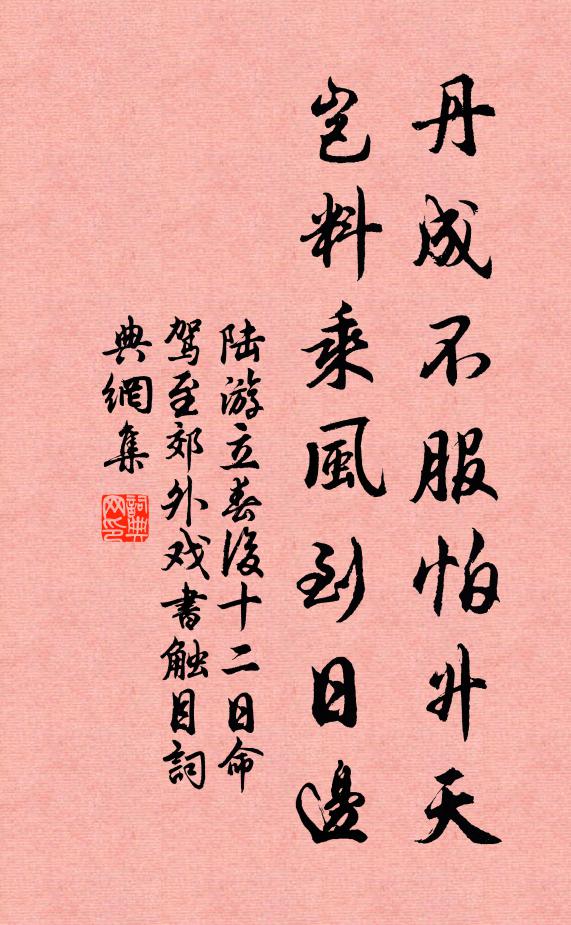 丹成不服怕升天
岂料乘風到日邊
陆游立春後十二日命
驾至郊外戏書触目詞
典網集
詞典网印